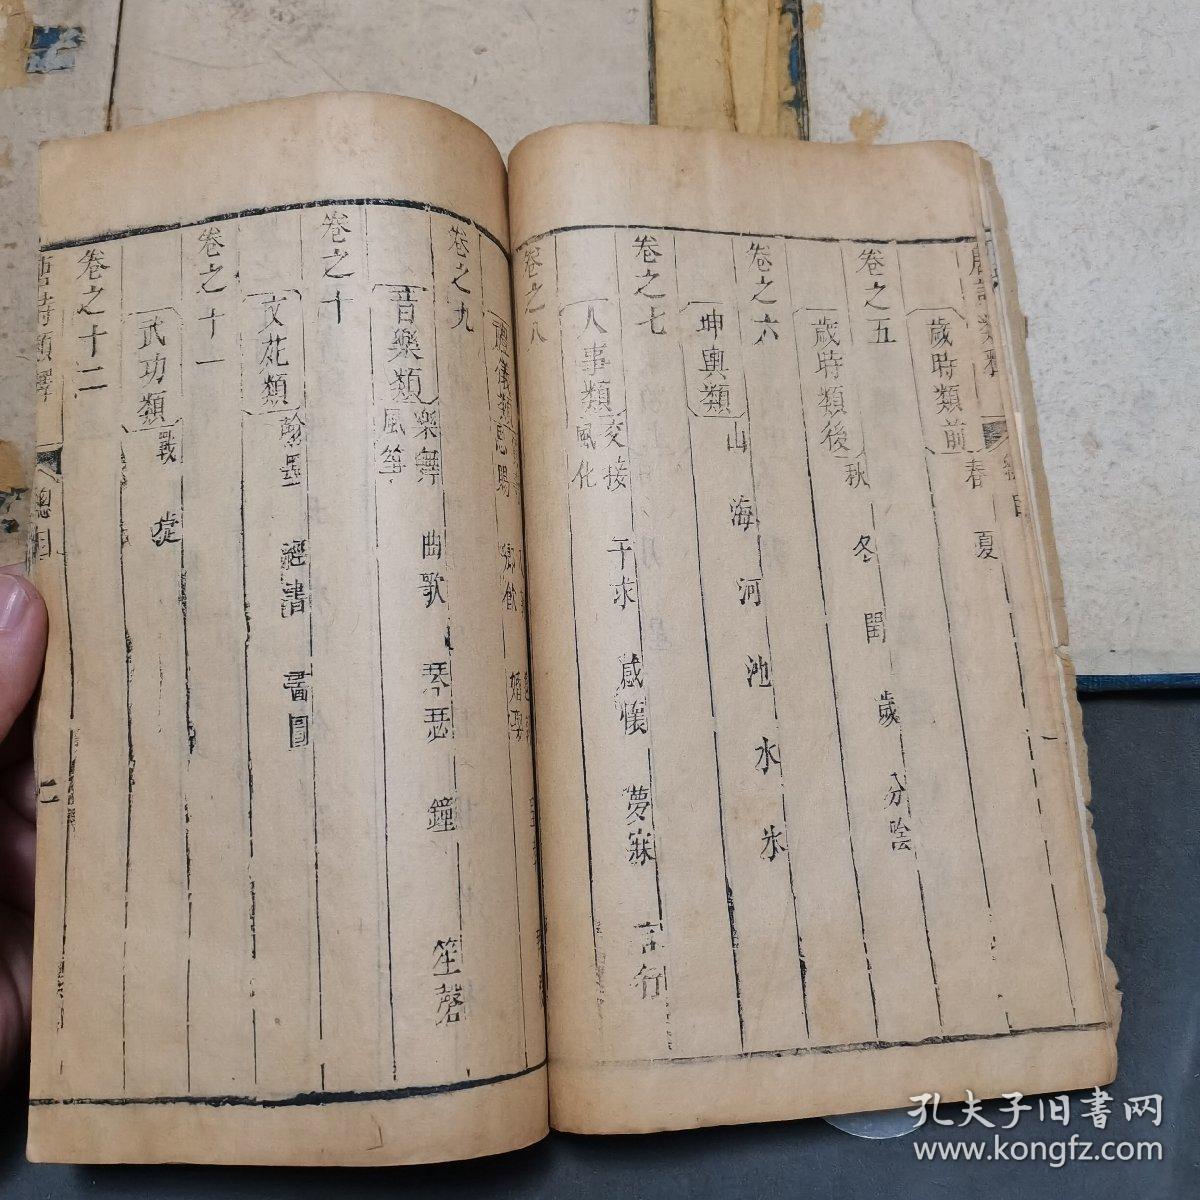 歲時類前 春 夏
卷之五
歲時類後 秋 冬 閏 歲 分陰
卷之六
坤輿類 山 海 河 池 水 氷
卷之七
人事類 交接 風化 干求 感懷 夢寐 言行
卷之八
卷之九
音樂類 樂舞 風箏 曲歌 琴瑟 鐘 笙磬
卷之十
文苑類 翰墨 經書 書圖
卷之十一
武功類 戰
卷之十二
唐詩類 總目
孔夫子旧書网
www.kongfz.com